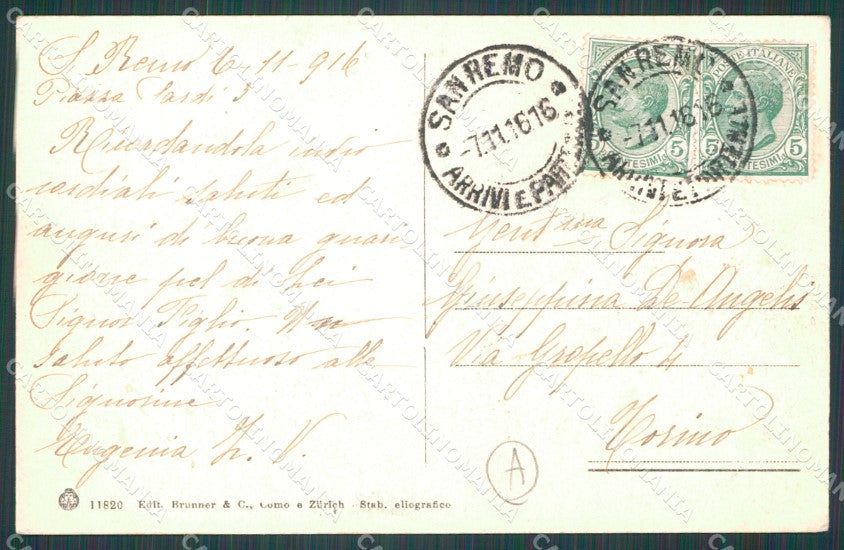 S. Remo 6-11-916
Piazza Sardi 5
Ricordandola invio
cordiali saluti ed
auguri di buona guari
gione pel di Lei
Signor Figlio. Un
saluto affettuoso alle
Signorine
Eugenia Z. V.
SANREMO
-7.11.16 16
ARRIVI E PARTENZE
SANREMO
-7.11.16 16
ARRIVI E PARTENZE
POSTE ITALIANE
5 CENTESIMI 5
5 CENTESIMI 5
Gent.ma Signora
Giuseppina De Angelis
Via Gropello 4
Torino
A
11820 Edit. Brunner & C., Como e Zürich - Stab. eliografico
CARTOLINOMANIA